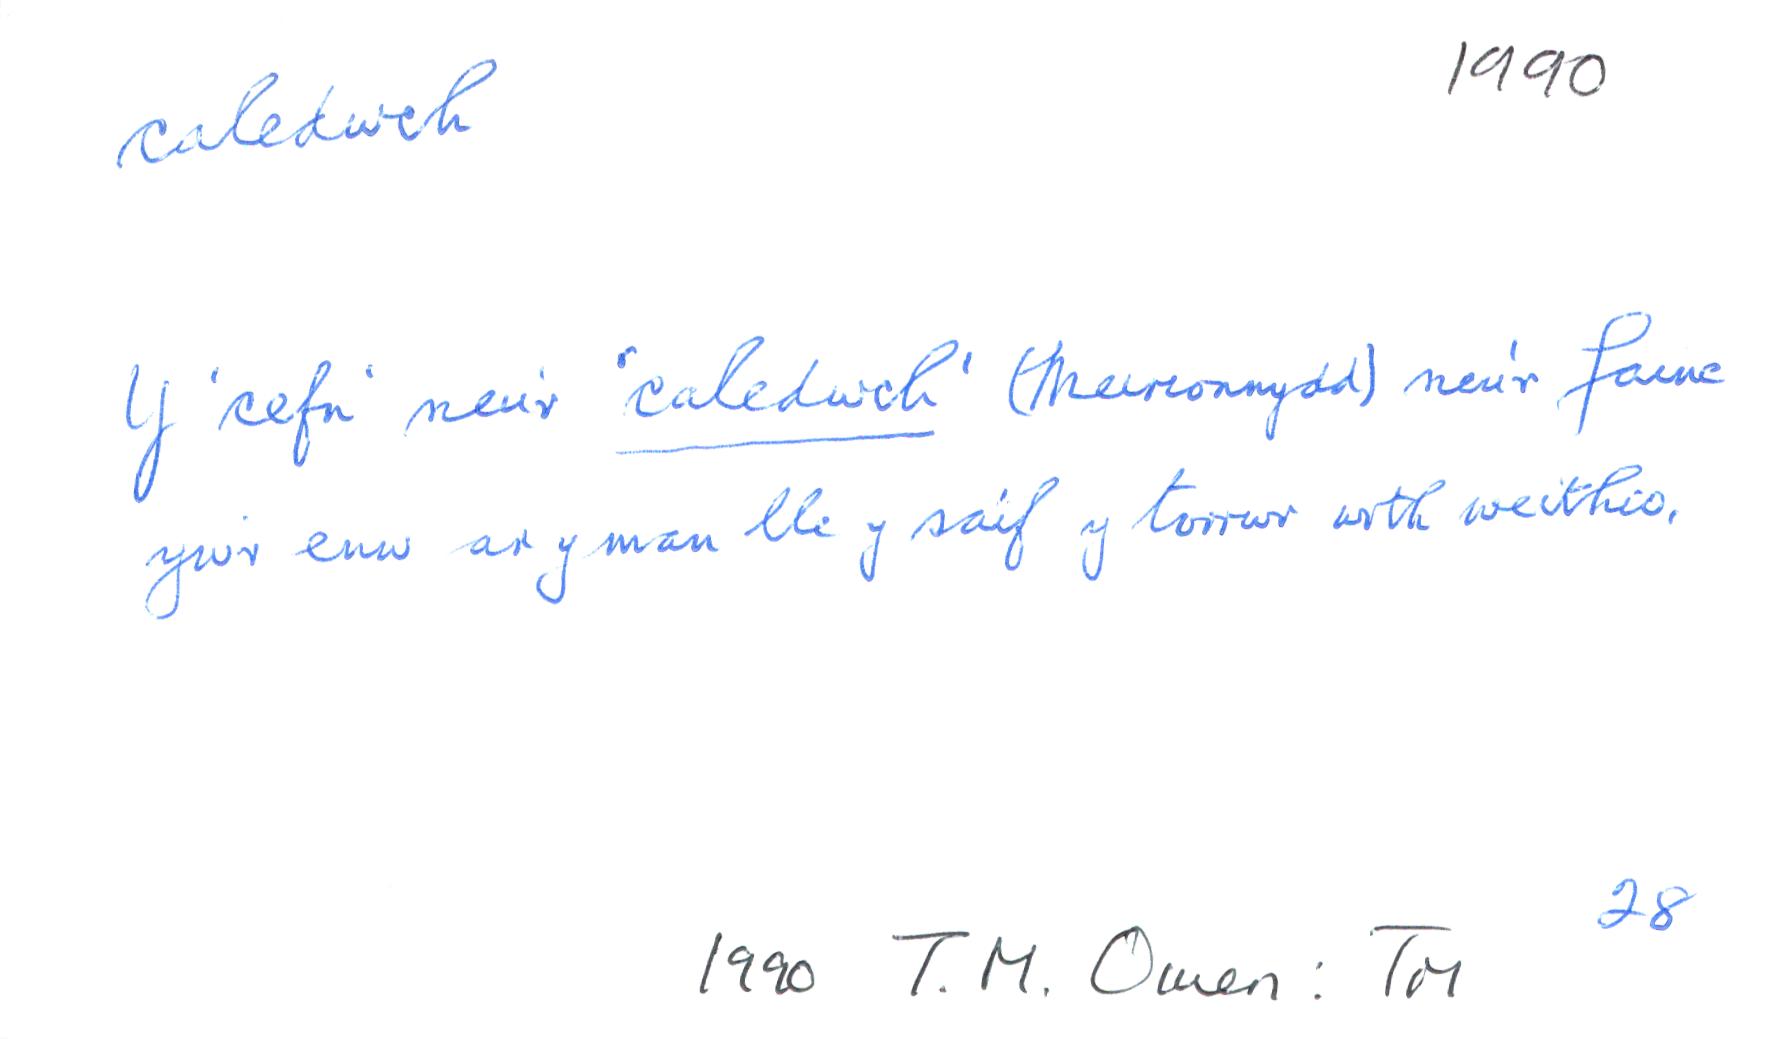 caledwch 1990
Y 'cefn' neu'r 'caledwch' (Meirionnydd) neu'r fainc
yw'r enw ar y man lle y saif y torrwr wrth weithio.
28
1990 T.M. Owen: TM